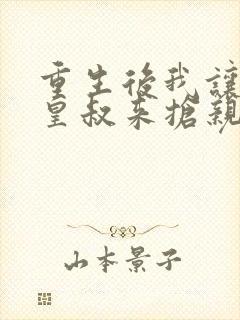 重生後我讓
皇叔來搶親
山本景子